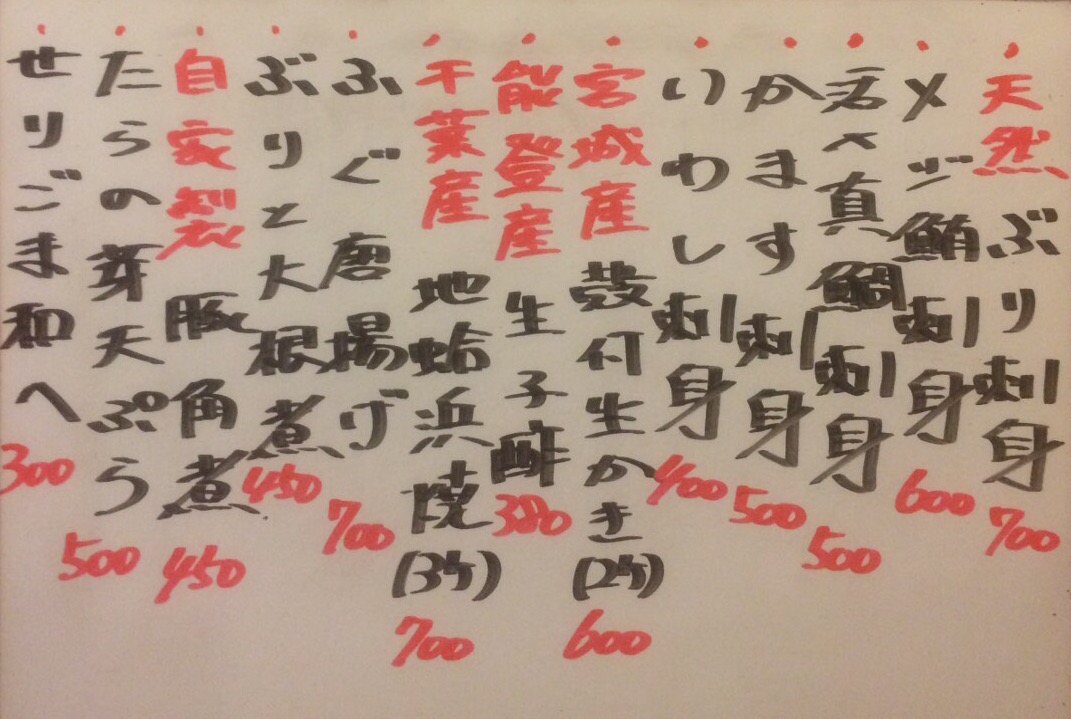 ・天然ぶり刺身 700
・メジ鮪刺身 600
・活〆真鯛刺身 500
・かます刺身 500
・いわし刺身 400
・宮城産殻付生かき(2ケ) 600
・能登産生子酢 380
・千葉産地蛤浜焼(3ケ) 700
・ふぐ唐揚げ 700
・ぶりと大根煮 450
・自家製豚角煮 450
・たらの芽天ぷら 500
・せりごま和へ 300